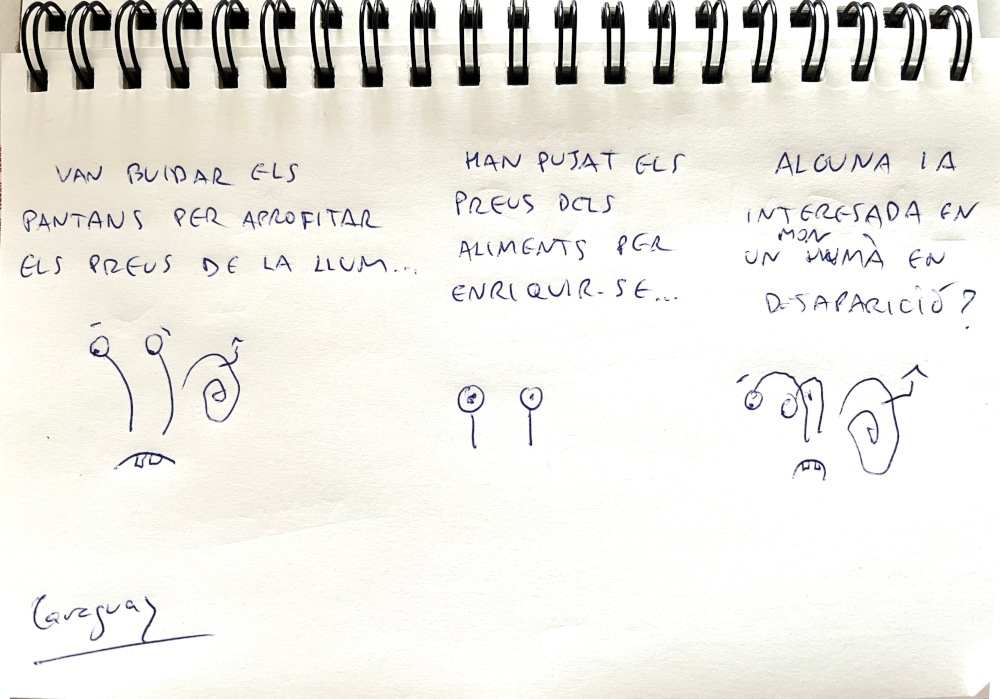 VAN BUIDAR ELS
PANTANS PER APROFITAR
ELS PREUS DE LA LLUM...
HAN PUJAT ELS
PREUS DELS
ALIMENTS PER
ENRIQUIR-SE...
ALGUNA IA
INTERESADA EN
UN MON HUMÀ EN
DESAPARICIÓ?
Caraguay